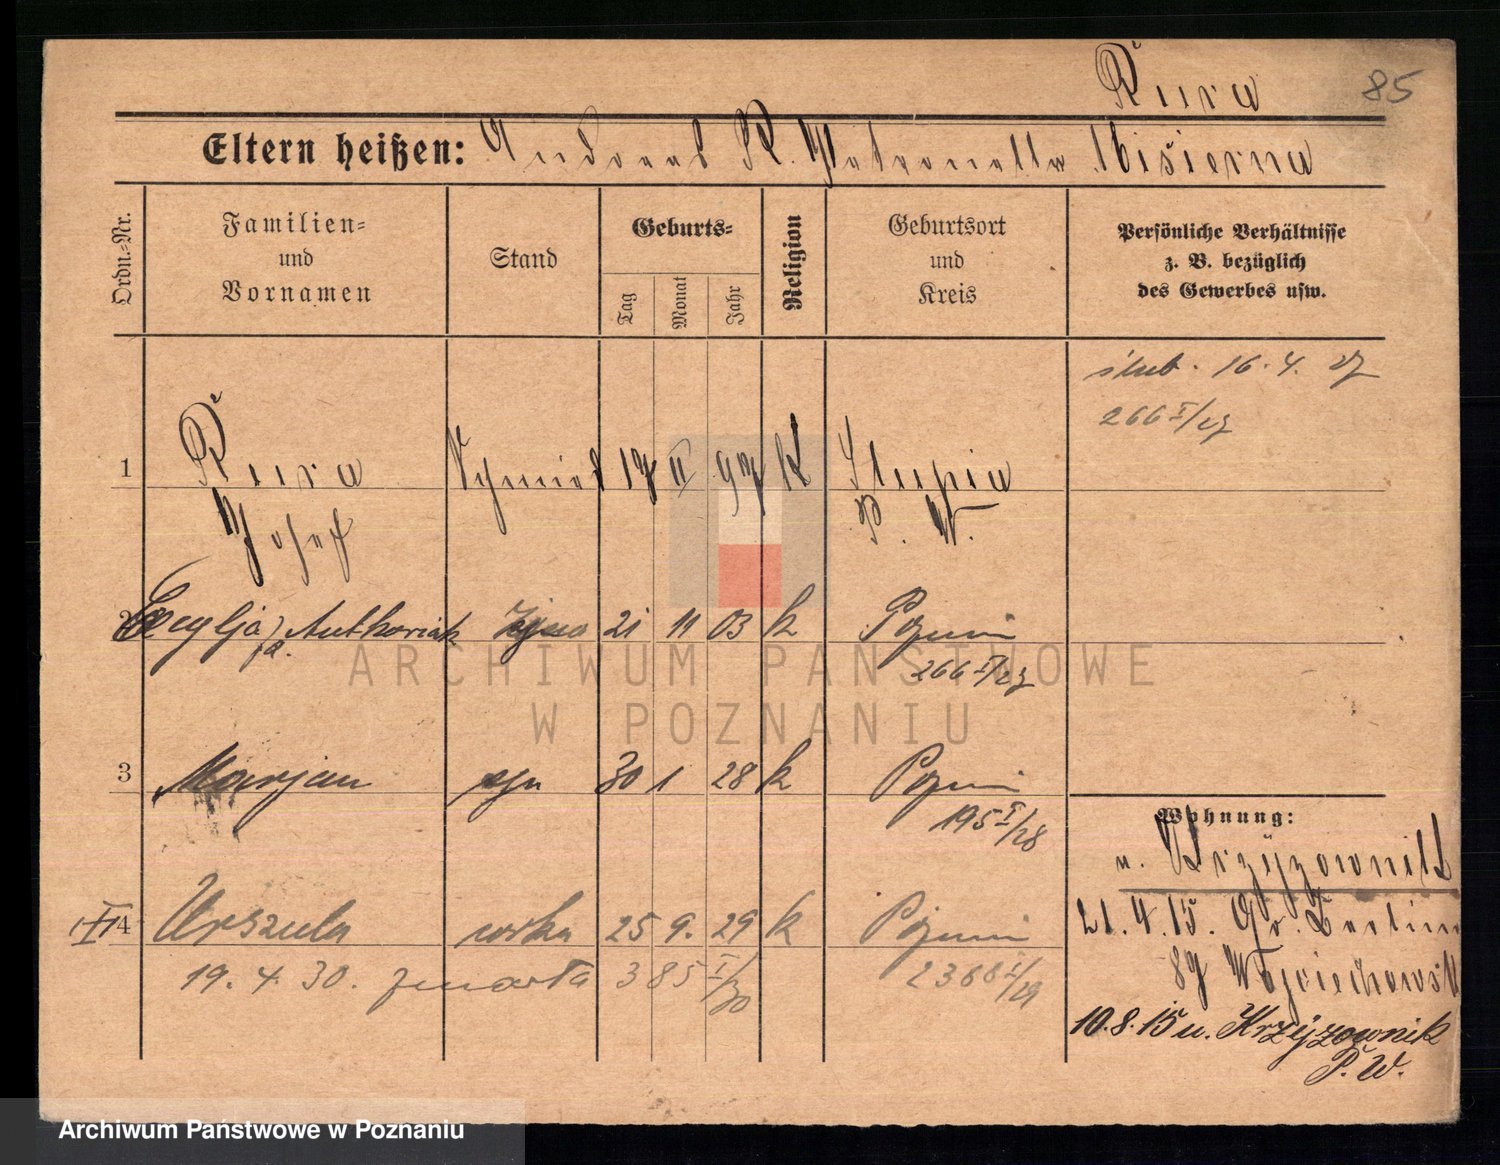 Rura 85
Eltern heißen: Andreas R. Petronella Misierna
Ordn.-Nr.
Familien-
und
Vornamen
Stand
Geburts-
Tag
Monat
Jahr
Religion
Geburtsort
und
Kreis
Persönliche Verhältnisse
z. B. bezüglich
des Gewerbes usw.
ślub. 16. 4. 27
266 I/27
1 Rura Schmied 17 II 97 K Slupia
Josef P. W.
2 Cecylja Antkowiak żona 21 11 03 k Poznań
266 I/27
3 Marjan syn 30 1 28 k Poznań
195 I/28
4 Urszula córka 25 9. 29 k Poznań
19. 4. 30. zmarła 385 I/30 2368 I/29
Wohnung:
n. Krzyżownik
21. 4. 15. Gr. Berlin
87 Wojciechowski
10. 8. 15 n. Krzyżownik
P. W.
ARCHIWUM PAŃSTWOWE
W POZNANIU
Archiwum Państwowe w Poznaniu